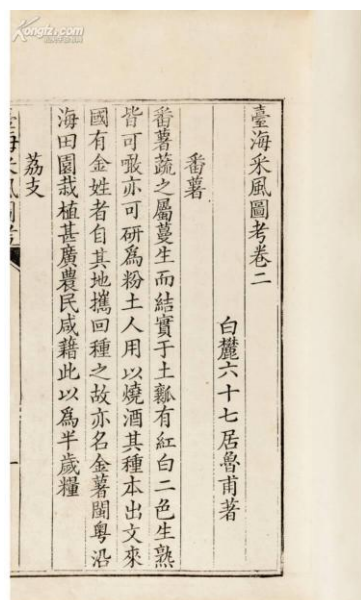 臺海采風圖考卷二
白麓六十七居魯甫著
番薯
番薯蔬之屬蔓生而結實于土瓤有紅白二色生熟
皆可噉亦可研爲粉土人用以燒酒其種本出文來
國有金姓者自其地攜回種之故亦名金薯閩粤沿
海田園栽植甚廣農民咸藉此以爲半歲糧
荔支
臺海采風圖考
Kongfz.com